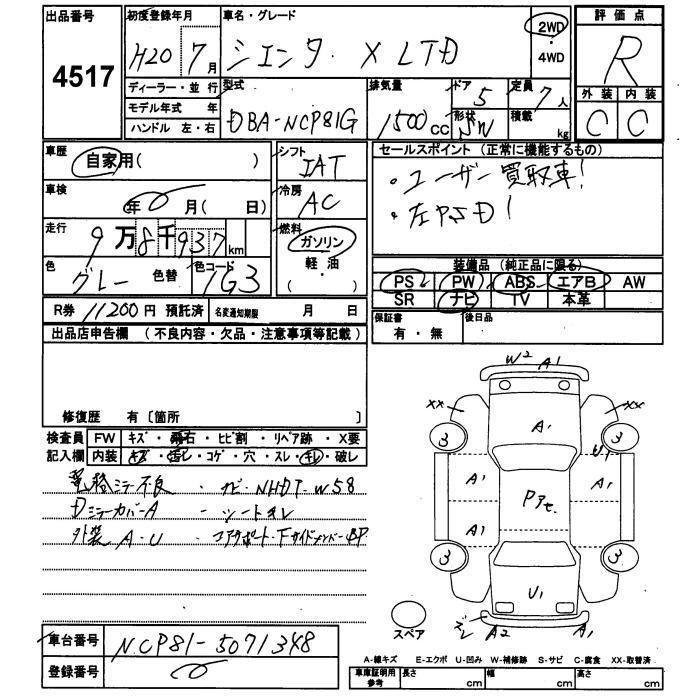 出品番号
4517
初度登録年月
H20 7月
車名・グレード
シエンタ X LTD
2WD
・
4WD
評価点
R
外装 内装
C C
ディーラー・並行
モデル年式 年
ハンドル 左・右
型式
DBA-NCP81G
排気量
1500cc
ドア
5
形状
SW
定員
7人
積載
kg
車歴
自家用( )
シフト
IAT
車検
年 月( 日)
冷房
AC
走行
9万8千937km
燃料
ガソリン
・
軽油
( )
色
グレー 色替
色コード
1G3
セールスポイント (正常に機能するもの)
・ユーザー買取車!
・左PSD!
装備品 (純正品に限る)
PS PW ABS エアB AW
SR ナビ TV 本革
R券 11200円 預託済
名変通知期限 月 日
保証書
有・無
後日品
出品店申告欄 (不良内容・欠品・注意事項等記載)
修復歴 有〔箇所 〕
検査員 FW キズ・飛石・ヒビ割・リペア跡・X要
記入欄 内装 キズ・汚レ・コゲ・穴・スレ・キレ・破レ
電格ミラー不良 ・ナビ NHDT-W58
Dミラーカバー A ・シートキレ
外装 A・U ・コアサポート・Fサイドメンバー BP
W2 A1
XX XX
3 A1 3
U1
A1 A1
Pアセ.
A1
3 3
U1
スペア
ズレ A2 A1
車台番号
NCP81-5071348
登録番号
A-線キズ E-エクボ U-凹み W-補修跡 S-サビ C-腐食 XX-取替済
車庫証明用
参考
長さ cm 幅 cm 高さ cm